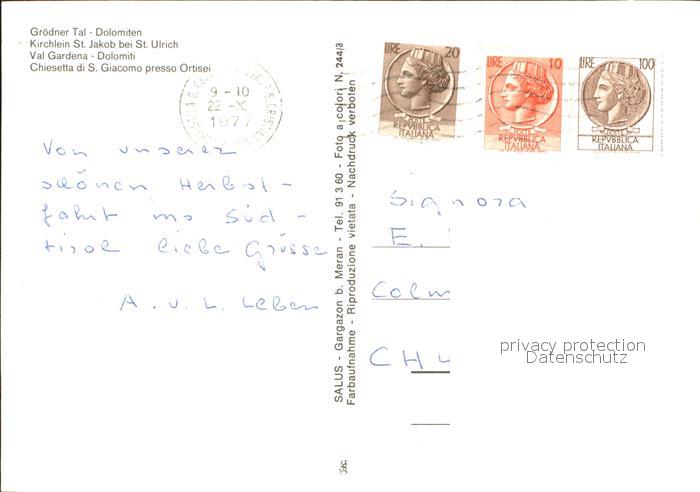 Grödner Tal - Dolomiten
Kirchlein St. Jakob bei St. Ulrich
Val Gardena - Dolomiti
Chiesetta di S. Giacomo presso Ortisei
9-10
22-X
1977
LIRE 20
REPVBBLICA
ITALIANA
LIRE 10
REPVBBLICA
ITALIANA
LIRE 100
REPVBBLICA
ITALIANA
Von unserer
schönen Herbst-
fahrt ins Süd-
tirol liebe Grüsse
A. u. L. Leben
SALUS - Gargazon b. Meran - Tel. 91 3 60 - Foto a colori N. 244/a
Farbaufnahme - Riproduzione vietata - Nachdruck verboten
Signora
E.
Colm
CH
privacy protection
Datenschutz